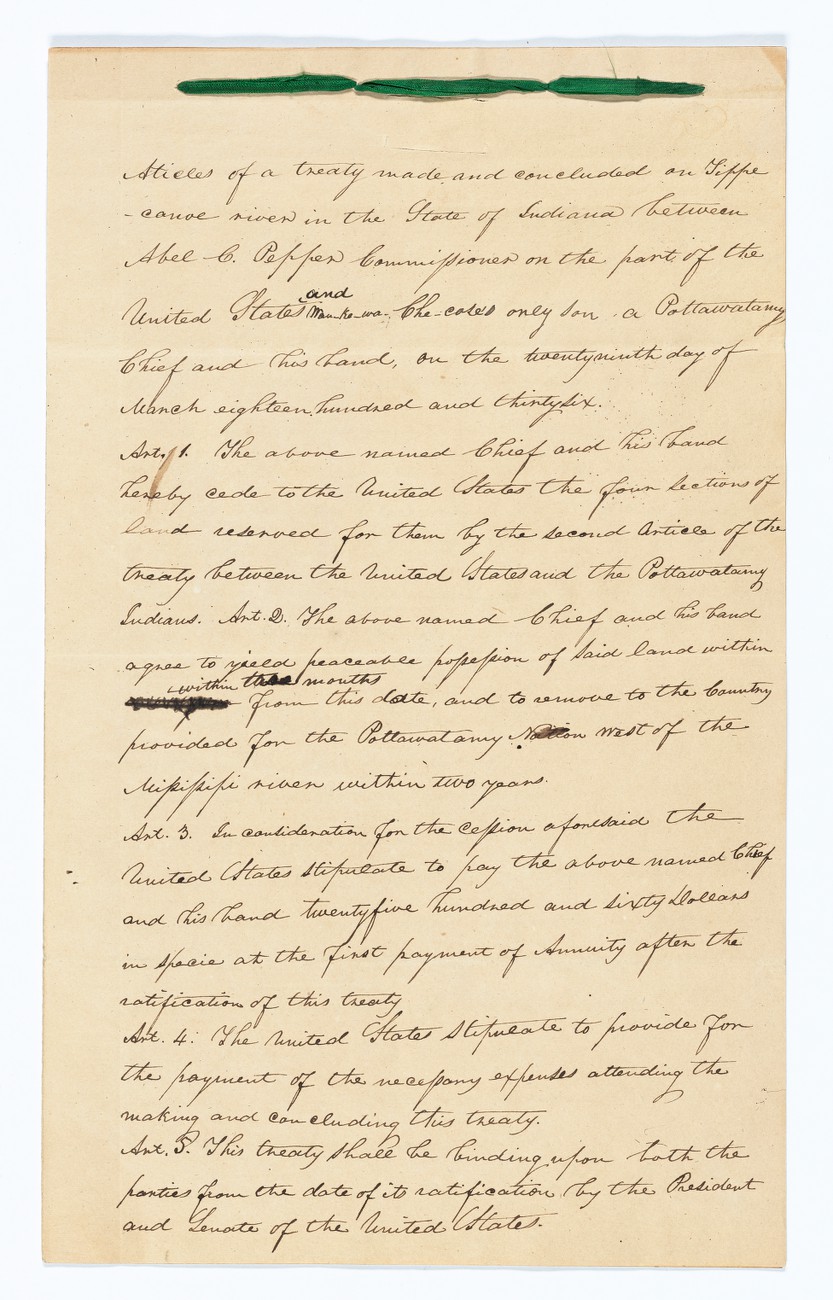 Aticles of a treaty made and concluded on Tippe
-canoe river in the State of Indiana between
Abel C. Pepper Commissioner on the part of the
United States and Mau-ke-wa, Che-coses only son a Pottawatamy
Chief and his band, on the twentyninth day of
March eighteen hundred and thirtysix.
Art. 1. The above named Chief and his band
hereby cede to the United States the four Sections of
land reserved for them by the second Article of the
treaty between the United States and the Pottawatamy
Indians. Art. 2. The above named Chief and his band
agree to yield peaceable possession of said land within
within three months
from this date, and to remove to the Country
provided for the Pottawatamy Nation west of the
Missippi river within two years.
Art. 3. In consideration for the cession aforesaid the
United States stipulate to pay the above named Chief
and his band twentyfive hundred and sixty Dollars
in specie at the first payment of Annuity after the
ratification of this treaty
Art. 4: The United States stipulate to provide for
the payment of the necessary expenses attending the
making and concluding this treaty.
Art. 5. This treaty shall be binding upon both the
parties from the date of its ratification by the President
and Senate of the United States.